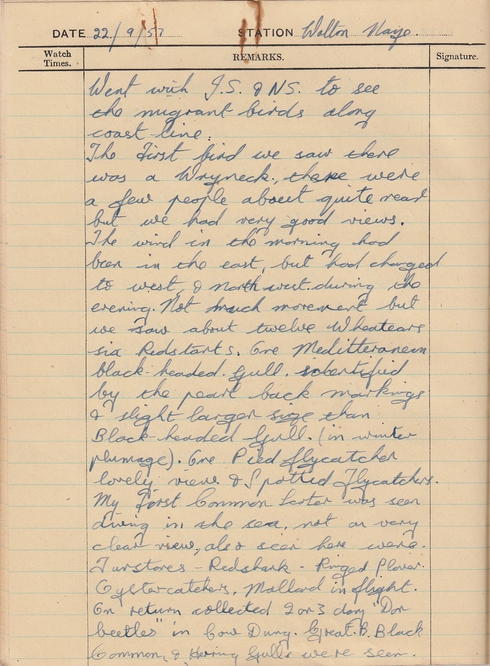 DATE 22/9/57 STATION Walton Naze.
Watch Times. REMARKS. Signature.
Went with J.S. & N.S. to see
the migrant birds along
coast line.
The first bird we saw there
was a Wryneck, there were
a few people about quite near
but we had very good views.
The wind in the morning had
been in the east, but had changed
to west, & north west during the
evening. Not much movement but
we saw about twelve Wheatears
six Redstarts. One Meditteranean
black-headed Gull.
by the pearl back markings
& slight larger size than
Black-headed Gull. (in winter
plumage). One Pied flycatcher
lovely view & Spotted Flycatchers.
My first Common Scoter was seen
diving in the sea, not a very
clear view, also seen here were.
Turnstones - Redshank - Ringed Plover.
Oystercatchers, Mallard in flight.
On return collected 2 or 3 "Dor
beetles" in Cow Dung. Great. B. Black
Common, & Herring Gulls were seen.